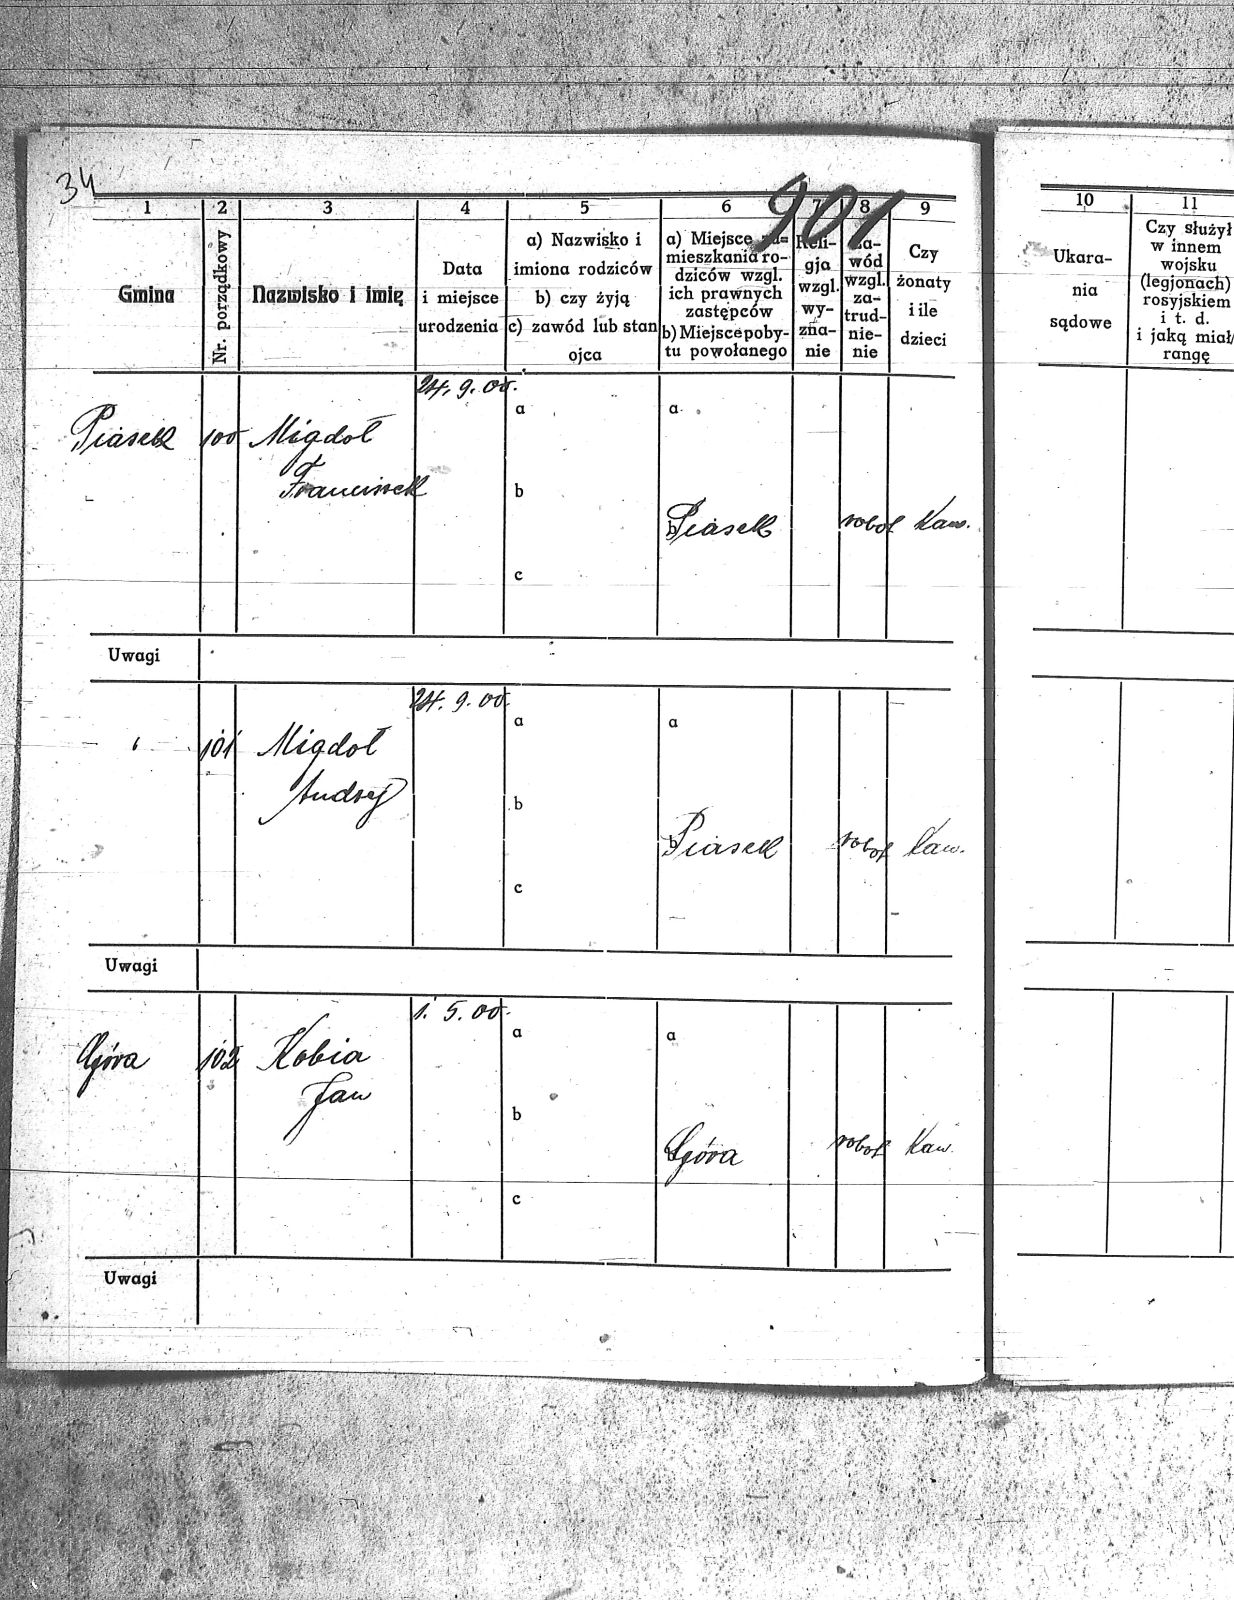 34
901
1 2 3 4 5 6 7 8 9 10 11
Gmina
Nr. porządkowy
Nazwisko i imię
Data
i miejsce
urodzenia
a) Nazwisko i
imiona rodziców
b) czy żyją
c) zawód lub stan
ojca
a) Miejsce za=
mieszkania ro-
dziców wzgl.
ich prawnych
zastępców
b) Miejsce poby-
tu powołanego
Reli-
gja
wzgl.
wy-
zna-
nie
Za-
wód
wzgl.
za-
trud-
nie-
nie
Czy
żonaty
i ile
dzieci
Ukara-
nia
sądowe
Czy służył
w innem
wojsku
(legjonach)
rosyjskiem
i t. d.
i jaką miał
rangę
24. 9. 00.
a a
Piasek 100 Migdoł
Franciszek
b
b Piasek robot Kaw.
c
Uwagi
24. 9. 00.
a a
101 Migdoł
Andrzej
b
b Piasek robot Kaw.
c
Uwagi
1. 5. 00.
a a
Góra 102 Kobia
Jan
b
b Góra robot Kaw.
c
Uwagi